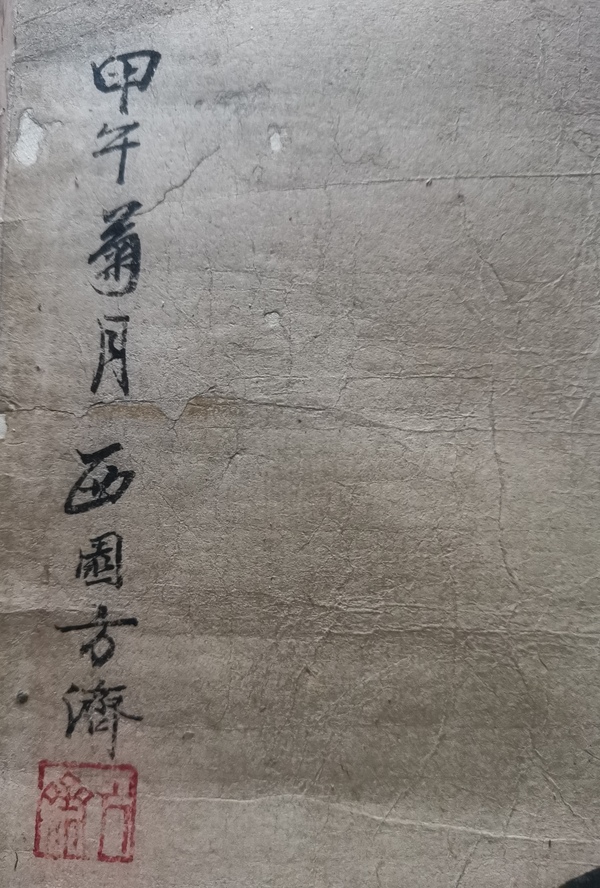 甲午菊月 西園方濟